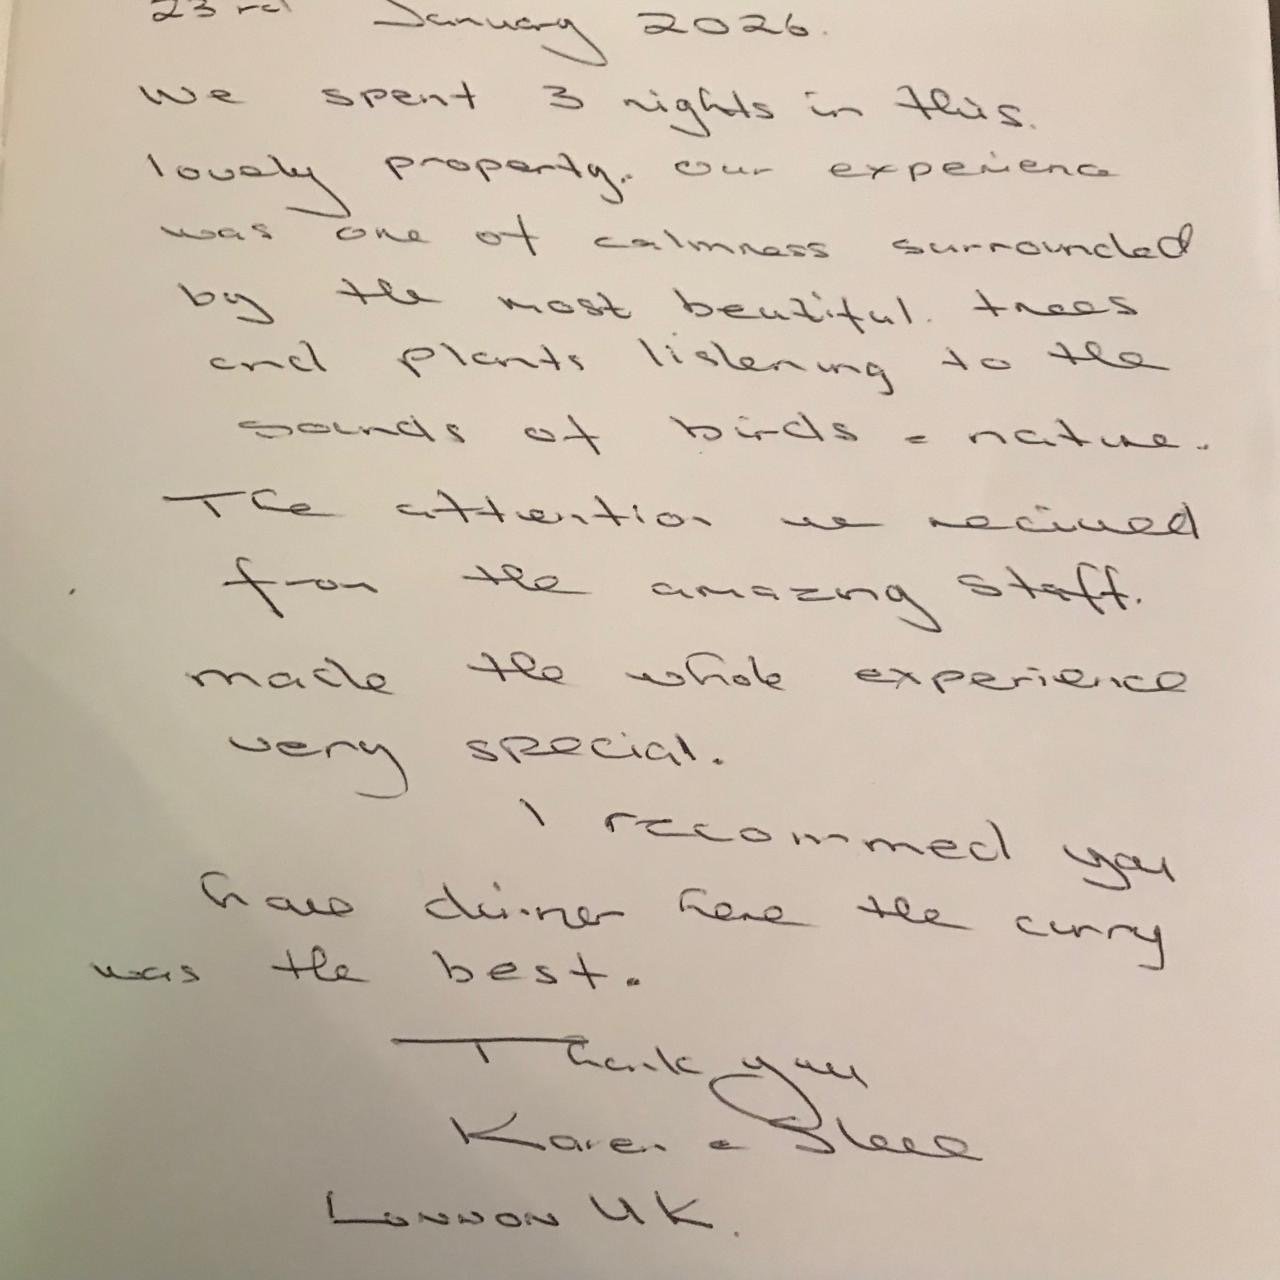 23rd January 2026.
We spent 3 nights in this.
lovely property. Our experience
was one of calmness surrounded
by the most beautiful. trees
and plants listening to the
sounds of birds & nature.
The attention we recieved
from the amazing staff.
made the whole experience
very special.
I recommed you
have dinner here the curry
was the best.
Thank you
Karen & Steve
London UK.